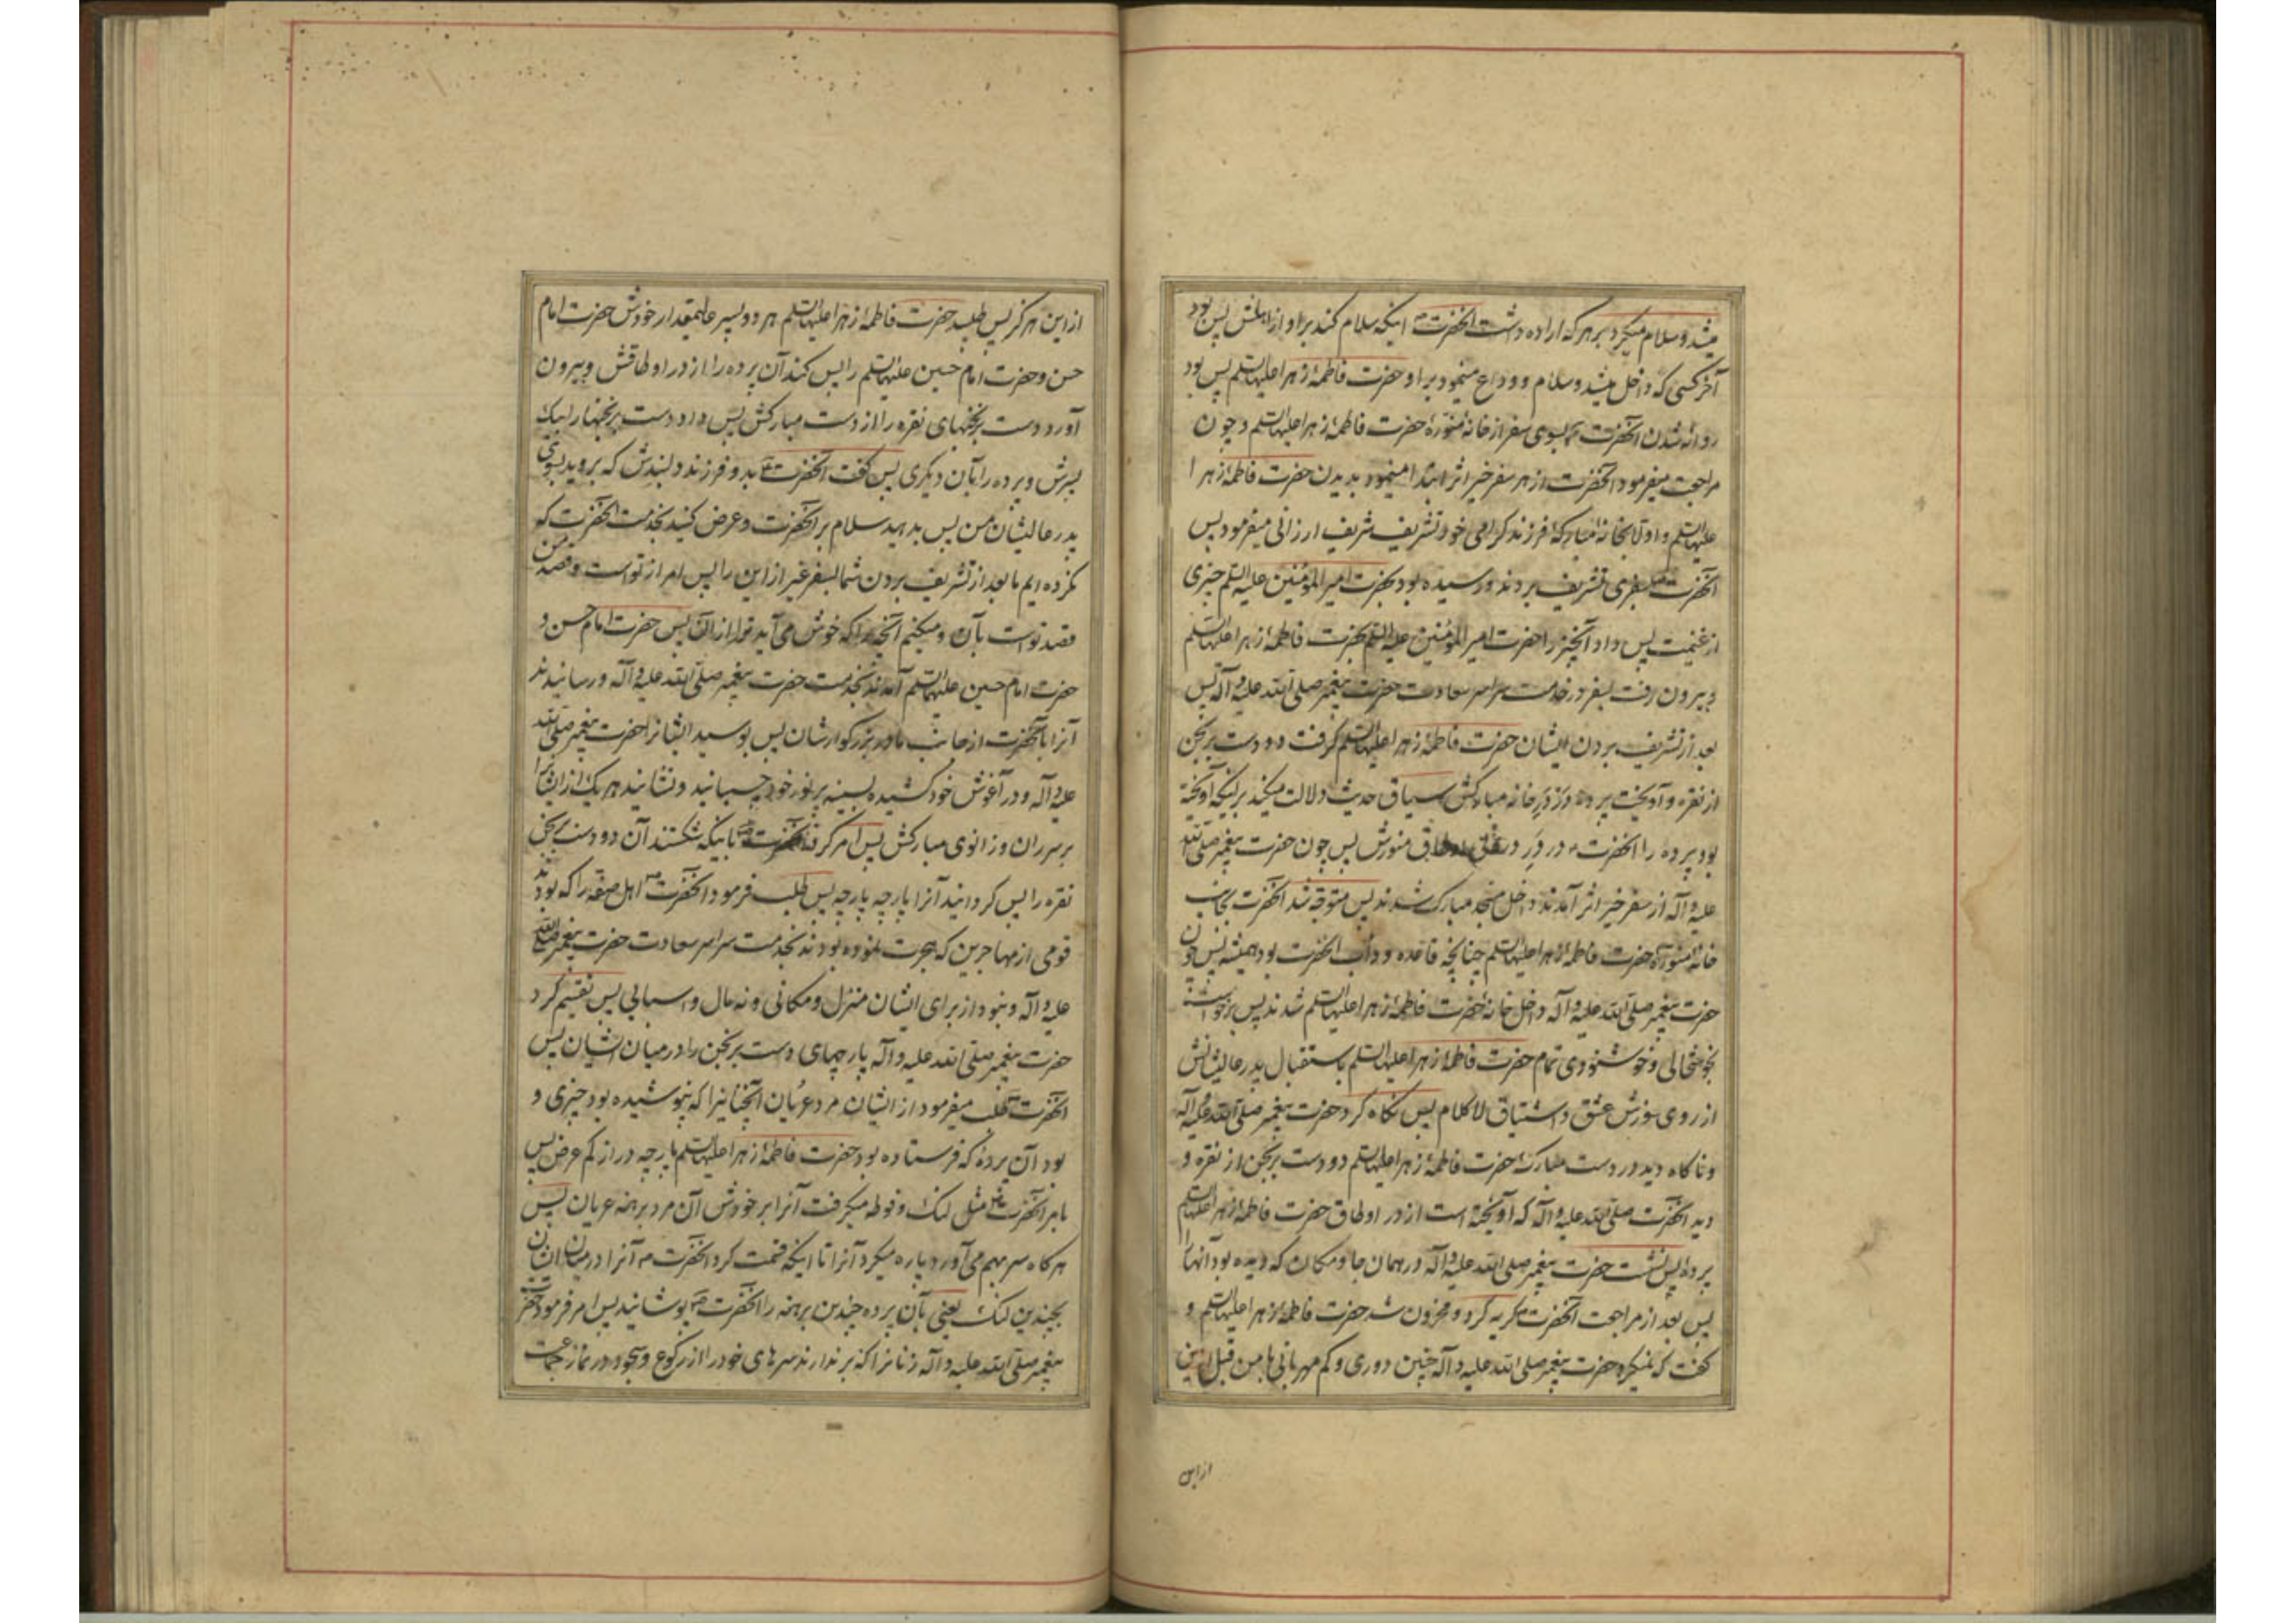 میشد و سلام میکرد بر هر که اراده داشت آنحضرت ص اینکه سلام کند بر او از اهلش پس بود
آخر کسی که داخل میشد و سلام و وداع مینمود بر او حضرت فاطمهٔ زهرا علیها السلم پس بود
روانه شدن آنحضرت بسوی سفر از خانهٔ منورهٔ حضرت فاطمهٔ زهرا علیها السلم و چون
مراجعت میفرمود آنحضرت از هر سفر خیر اثر ابتدا مینمود بدیدن حضرت فاطمهٔ زهرا
علیها السلم و اولا بخانهٔ مبارکهٔ فرزند گرامی خود تشریف شریف ارزانی میفرمود پس
آنحضرت بسفری تشریف بردند و رسیده بود بحضرت امیر المؤمنین علیه السلم چیزی
از غنیمت پس داد آنچیز را حضرت امیر المؤمنین علیه السلم بحضرت فاطمهٔ زهرا علیها السلم
و بیرون رفت بسفر در خدمت سراسر سعادت حضرت پیغمبر صلی الله علیه و آله پس
بعد از تشریف بردن ایشان حضرت فاطمهٔ زهرا علیها السلم گرفت دو دست برنجن
از نقره و آویخت پرده در در خانه مبارکش سیاق حدیث دلالت میکند بر اینکه آویخته
بود پرده را آنحضرت در در منورش پس چون حضرت پیغمبر صلی الله
علیه و آله از سفر خیر اثر آمدند داخل مسجد مبارک شدند پس متوجه شد آنحضرت بجانب
خانهٔ منورهٔ حضرت فاطمهٔ زهرا علیها السلم چنانچه قاعده و دأب آنحضرت بود همیشه پس چون
حضرت پیغمبر صلی الله علیه و آله داخل خانهٔ حضرت فاطمهٔ زهرا علیها السلم شدند پس برخواست
بخوشحالی و خوشنودی تمام حضرت فاطمهٔ زهرا علیها السلم باستقبال پدر عالیشانش
از روی سوزش عشق و اشتیاق لا کلام پس نگاه کرد حضرت پیغمبر صلی الله علیه و آله
و ناگاه دید در دست مبارکهٔ حضرت فاطمهٔ زهرا علیها السلم دو دست برنجن از نقره و
دید آنحضرت صلی الله علیه و آله که آویخته است از در اوطاق حضرت فاطمهٔ زهرا علیها السلم
پردهٔ پس نشست حضرت پیغمبر صلی الله علیه و آله در همان جا و مکان که دیده بود آنها را
پس بعد از مراجعت آنحضرت گریه کرد و محزون شد حضرت فاطمهٔ زهرا علیها السلم و
گفت که نمیکرد حضرت پیغمبر صلی الله علیه و آله چنین دوری و کم مهربانی با من قبل از این
از این
از این هرگز پس طلبید حضرت فاطمهٔ زهرا علیها السلم هر دو پسر عالیمقدار خودش حضرت امام
حسن و حضرت امام حسین علیهما السلم را پس کند آن پرده را از در اوطاقش و بیرون
آورد دست برنجنهای نقره را از دست مبارکش پس داد دست برنجنها را بیک
پسرش و پرده را بآن دیگری پس گفت آنحضرت بدو فرزند دلبندش که بروید بسوی
پدر عالیشان من پس بدهید سلام بر آنحضرت و عرض کنید بخدمت آنحضرت که
نکرده ایم ما بعد از تشریف بردن شما بسفر غیر از این را پس امر از تو است و قصد من
قصد تو است بآن و میکنم آنچه را که خوش می آید ترا از آن پس حضرت امام حسن و
حضرت امام حسین علیهما السلم آمدند بخدمت حضرت پیغمبر صلی الله علیه و آله و رسانیدند
آنرا بآنحضرت از جانب مادر بزرگوارشان پس بوسید ایشانرا حضرت پیغمبر صلی الله
علیه و آله و در آغوش خود کشیده بسینه پر نور خود چسبانید و نشانید هر یک از ایشانرا
بر سر ران و زانوی مبارکش پس امر کرد آنحضرت باینکه شکستند آن دو دست برنجن
نقره را پس گردانید آنرا پارچه پارچه پس طلب فرمود آنحضرت ص اهل صفه را که بودند
قومی از مهاجرین که هجرت نموده بودند بخدمت سراسر سعادت حضرت پیغمبر صلی الله
علیه و آله و نبود از برای ایشان منزل و مکانی و نه مال و اسبابی پس تقسیم کرد
حضرت پیغمبر صلی الله علیه و آله پارچهای دست برنجن را در میان ایشان پس
آنحضرت طلب میفرمود از ایشان مرد عریان آنچنانیرا که نپوشیده بود چیزی و
بود آن پردهٔ که فرستاده بود حضرت فاطمهٔ زهرا علیها السلم پارچه دراز کم عرض پس
بامر آنحضرت مثل لنگ و فوطه میگرفت آنرا بر خودش آن مرد برهنه عریان پس
هرگاه سر بهم می آورد پاره میکرد آنرا تا اینکه قسمت کرد آنحضرت ص آنرا در میان ایشان
بچندین لنگ یعنی بآن پرده چندین برهنه را آنحضرت پوشانید پس امر فرمود حضرت
پیغمبر صلی الله علیه و آله زنانرا که بر ندارند سرهای خود را از رکوع و سجود در نماز جماعت